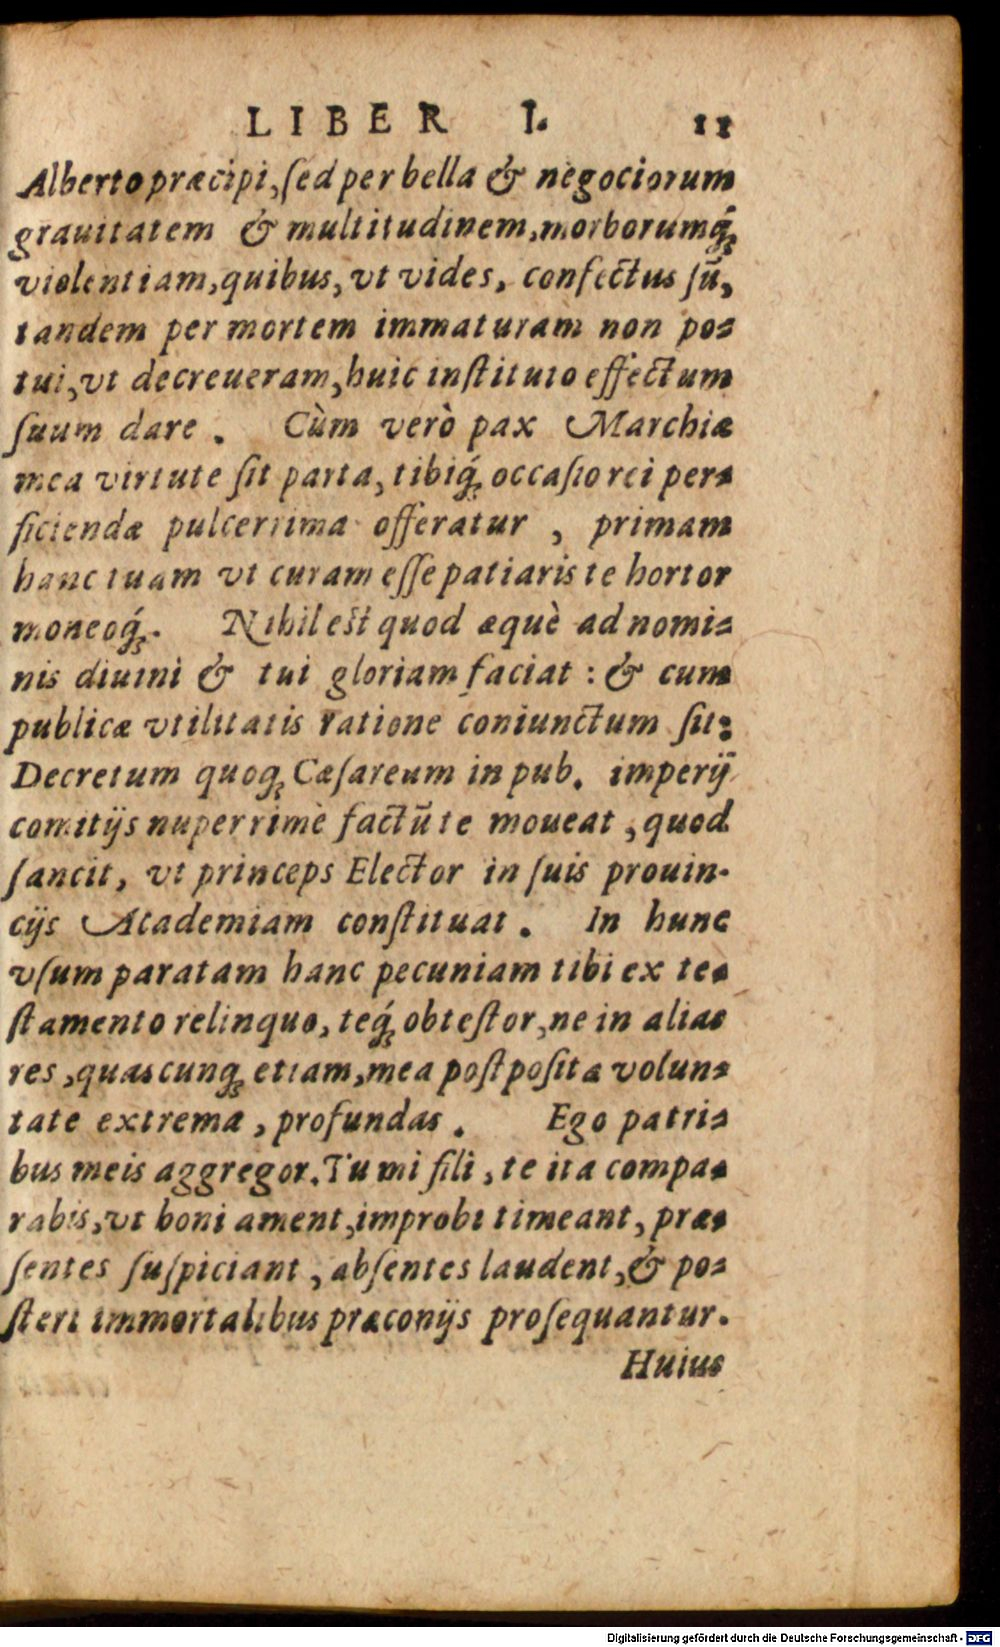 LIBER I. 11
Alberto præcipi, ſed per bella & negociorum
grauitatem & multitudinem, morborumq́;
violentiam, quibus, vt vides, confectus ſū,
tandem per mortem immaturam non po-
tui, vt decreueram, huic inſtituto effectum
ſuum dare. Cùm verò pax Marchiæ
mea virtute ſit parta, tibiq́; occaſio rei per-
ficiendæ pulcerrima offeratur, primam
hanc tuam vt curam eſſe patiaris te hortor
moneoq́;. Nihil eſt quod æquè ad nomi-
nis diuini & tui gloriam faciat: & cum
publicæ vtilitatis ratione coniunctum ſit:
Decretum quoq; Cæſareum in pub. imperij
comitijs nuperrimè factū te moueat, quod
ſancit, vt princeps Elector in ſuis prouin-
cijs Academiam conſtituat. In hunc
vſum paratam hanc pecuniam tibi ex te-
ſtamento relinquo, teq́; obteſtor, ne in alias
res, quascunq; etiam, mea poſtpoſita volun-
tate extrema, profundas. Ego patri-
bus meis aggregor. Tu mi fili, te ita compa-
rabis, vt boni ament, improbi timeant, præ-
ſentes ſuſpiciant, abſentes laudent, & po-
ſteri immortalibus præconijs proſequantur.
Huius
Digitalisierung gefördert durch die Deutsche Forschungsgemeinschaft - DFG